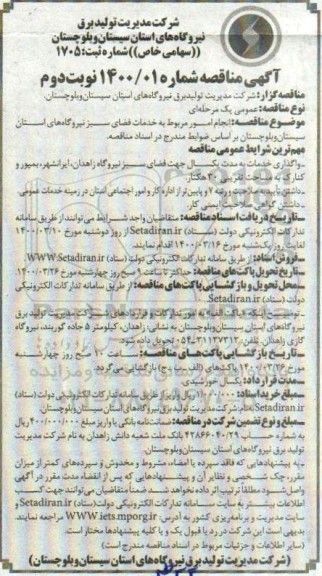 شرکت مدیریت تولید برق
نیروگاه‌های استان سیستان و بلوچستان
((سهامی خاص)) شماره ثبت: ۱۷۰۵
آگهی مناقصه شماره ۱۴۰۰/۰۱ نوبت دوم
مناقصه گزار: شرکت مدیریت تولید برق نیروگاه‌های استان سیستان و بلوچستان.
نوع مناقصه: عمومی یک مرحله‌ای
موضوع مناقصه: انجام امور مربوط به خدمات فضای سبز نیروگاه‌های استان
سیستان و بلوچستان بر اساس ضوابط مندرج در اسناد مناقصه.
مهم‌ترین شرایط عمومی مناقصه
ـ واگذاری خدمات به مدت یکسال جهت فضای سبز نیروگاه زاهدان، ایرانشهر، بمپور و
کنارک به مساحت تقریبی هکتار.
ـ داشتن تأیید صلاحیت رتبه ۷ و پایین‌تر از اداره کار و امور اجتماعی استان در زمینه خدمات عمومی.
ـ داشتن گواهی صلاحیت ایمنی کار.
ـ تاریخ دریافت اسناد مناقصه: متقاضیان واجد شرایط می‌توانند از طریق سامانه
تدارکات الکترونیکی دولت (ستاد) Setadiran.ir از روز دوشنبه مورخ ۱۴۰۰/۰۳/۱۰
لغایت روز یک‌شنبه مورخ ۱۴۰۰/۰۳/۱۶ اقدام نمایند.
ـ فروش اسناد: از طریق سامانه تدارکات الکترونیکی دولت (ستاد) WWW.Setadiran.ir
ـ تاریخ تحویل پاکت‌های مناقصه: حداکثر تا ساعت ۹ صبح روز چهارشنبه مورخ ۱۴۰۰/۰۳/۲۶
ـ محل تحویل و بازگشایی پاکت‌های مناقصه: از طریق سامانه تدارکات الکترونیکی
دولت (ستاد) Setadiran.ir
ـ توضیح اینکه پاکت الف به امور تدارکات و قراردادهای شرکت مدیریت تولید برق
نیروگاه‌های استان سیستان و بلوچستان به نشانی: زاهدان، کیلومتر ۵ جاده گوربند، نیروگاه
گازی زاهدان، تلفن: ۰۵۴-۳۱۱۳۷۳۱۲ تحویل داده شود.
ـ تاریخ بازگشایی پاکت‌های مناقصه: ساعت ۱۰ صبح روز چهارشنبه
مورخ ۱۴۰۰/۰۳/۲۶ پاکت‌های (الف ـ ب ـ ج) بازگشایی می‌گردد.
ـ مدت قرارداد: یکسال خورشیدی.
ـ مبلغ خرید اسناد: ریال واریز از طریق سامانه تدارکات الکترونیکی دولت (ستاد)
Setadiran.ir بنام شرکت مدیریت تولید برق نیروگاه‌های استان سیستان و بلوچستان.
ـ مبلغ و نوع تضمین شرکت در مناقصه: ضمانتنامه بانکی یا واریز مبلغ ۴۰۰/۰۰۰/۰۰۰ ریال
به شماره حساب بانک ملت شعبه دانش زاهدان به نام شرکت مدیریت
تولید برق نیروگاه‌های استان سیستان و بلوچستان.
ـ به پیشنهادهایی که فاقد سپرده یا امضاء، مشروط و مخدوش و سپرده‌های کمتر از میزان
مقرر، چک شخصی و نظایر آن و پیشنهادهایی که پس از انقضاء مدت مقرر در آگهی
واصل شود مطلقاً ترتیب اثر داده نخواهد شد. ضمناً متقاضیان می‌توانند جهت کسب
اطلاعات بیشتر به سایت سامانه تدارکات الکترونیکی دولت (ستاد) Setadiran.ir و
سایت مدیریت و برنامه‌ریزی کشور به آدرس: WWW.iets.mporg.ir مراجعه نمایند.
بدیهی است این شرکت در رد یا قبول یک و یا کلیه پیشنهادها مختار است.
(سایر اطلاعات و جزئیات مربوط در اسناد مناقصه مندرج است)
(شرکت مدیریت تولید برق نیروگاه‌های استان سیستان و بلوچستان)